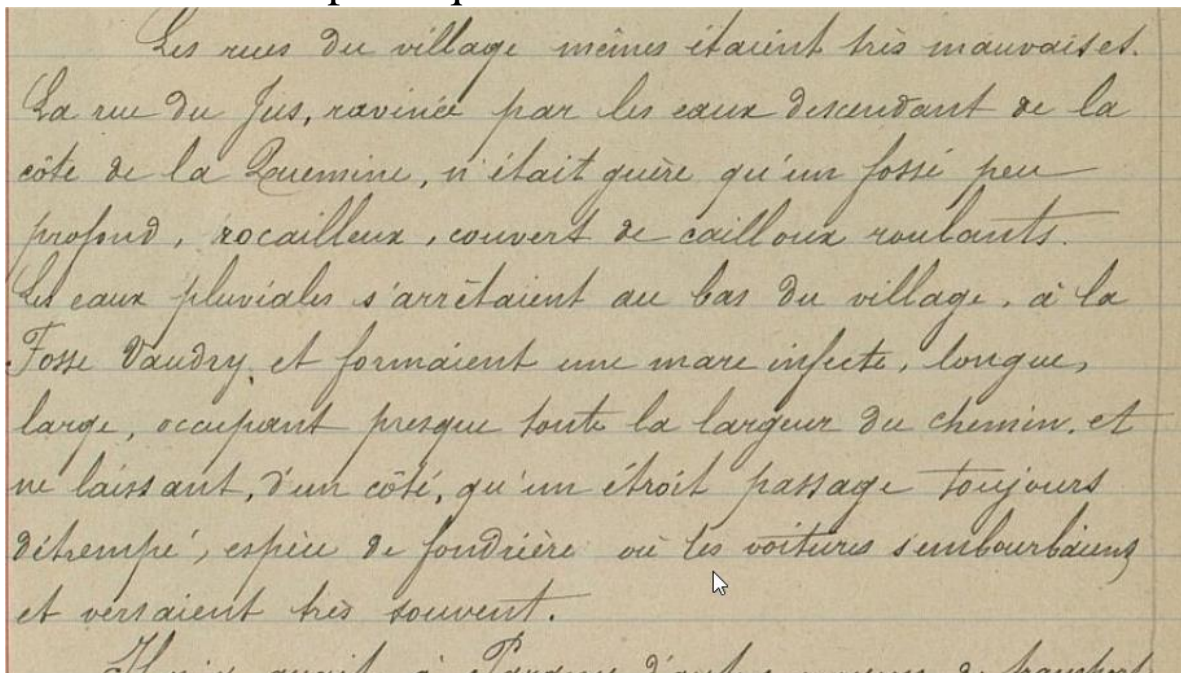 Les rues du village mêmes étaient très mauvaises.
La rue du Jus, ravinée par les eaux descendant de la
côte de la Quemine, n'était guère qu'un fossé peu
profond, rocailleux, couvert de cailloux roulants.
Les eaux pluviales s'arrêtaient au bas du village, à la
Fosse Vaudry, et formaient une mare infecte, longue,
large, occupant presque toute la largeur du chemin, et
ne laissant, d'un côté, qu'un étroit passage toujours
détrempé, espèce de fondrière où les voitures s'embourbaient
et versaient très souvent.